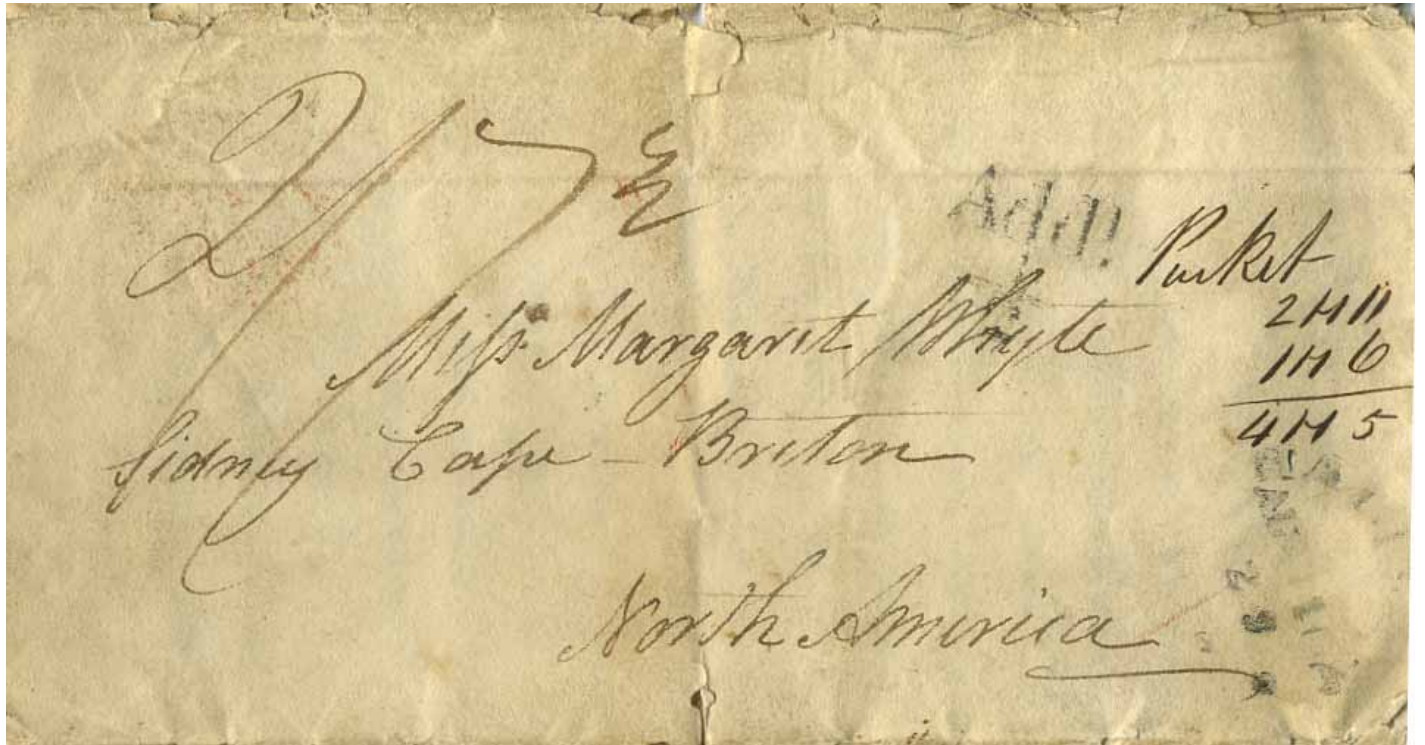 2/7½
Add!
Packet
2 N 11
1 N 6
4 N 5
Miſs Margaret Whyte
Sidney Cape – Breton
North America